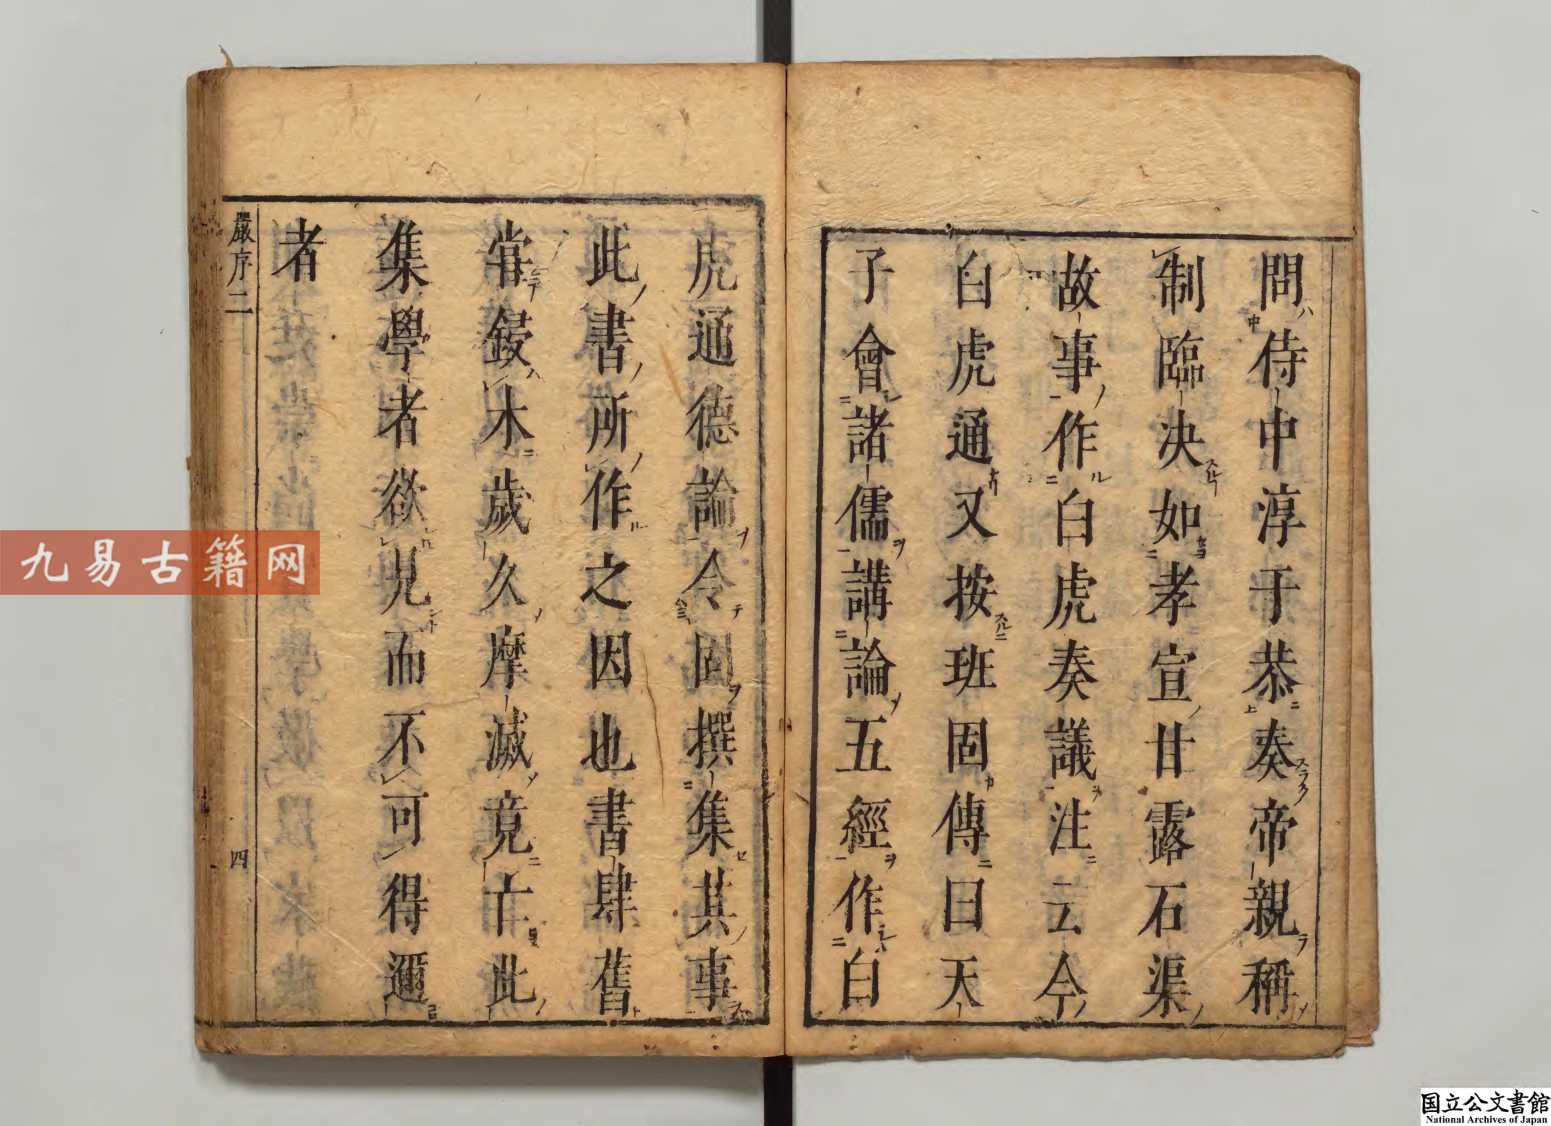 問侍中淳于恭奏帝親稱
制臨决如孝宣甘露石渠
故事作白虎奏議注云今
白虎通又按班固傳曰天
子會諸儒講論五經作白
虎通德論令固撰集其事
此書所作之因也書肆舊
甞鋟木歲久摩滅竟亡此
集學者欲見而不可得邇
者
嚴序二
四
九易古籍网
国立公文書館
National Archives of Japan